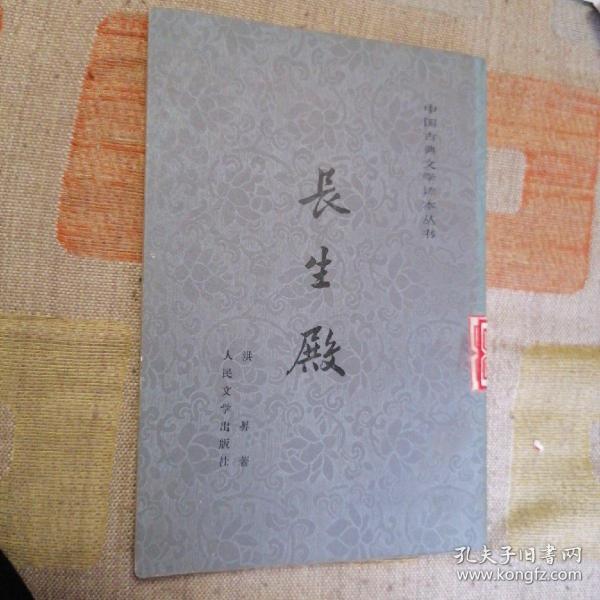 中国古典文学读本丛书
長生殿
洪昇著
人民文学出版社
孔夫子旧書网
www.kongfz.com